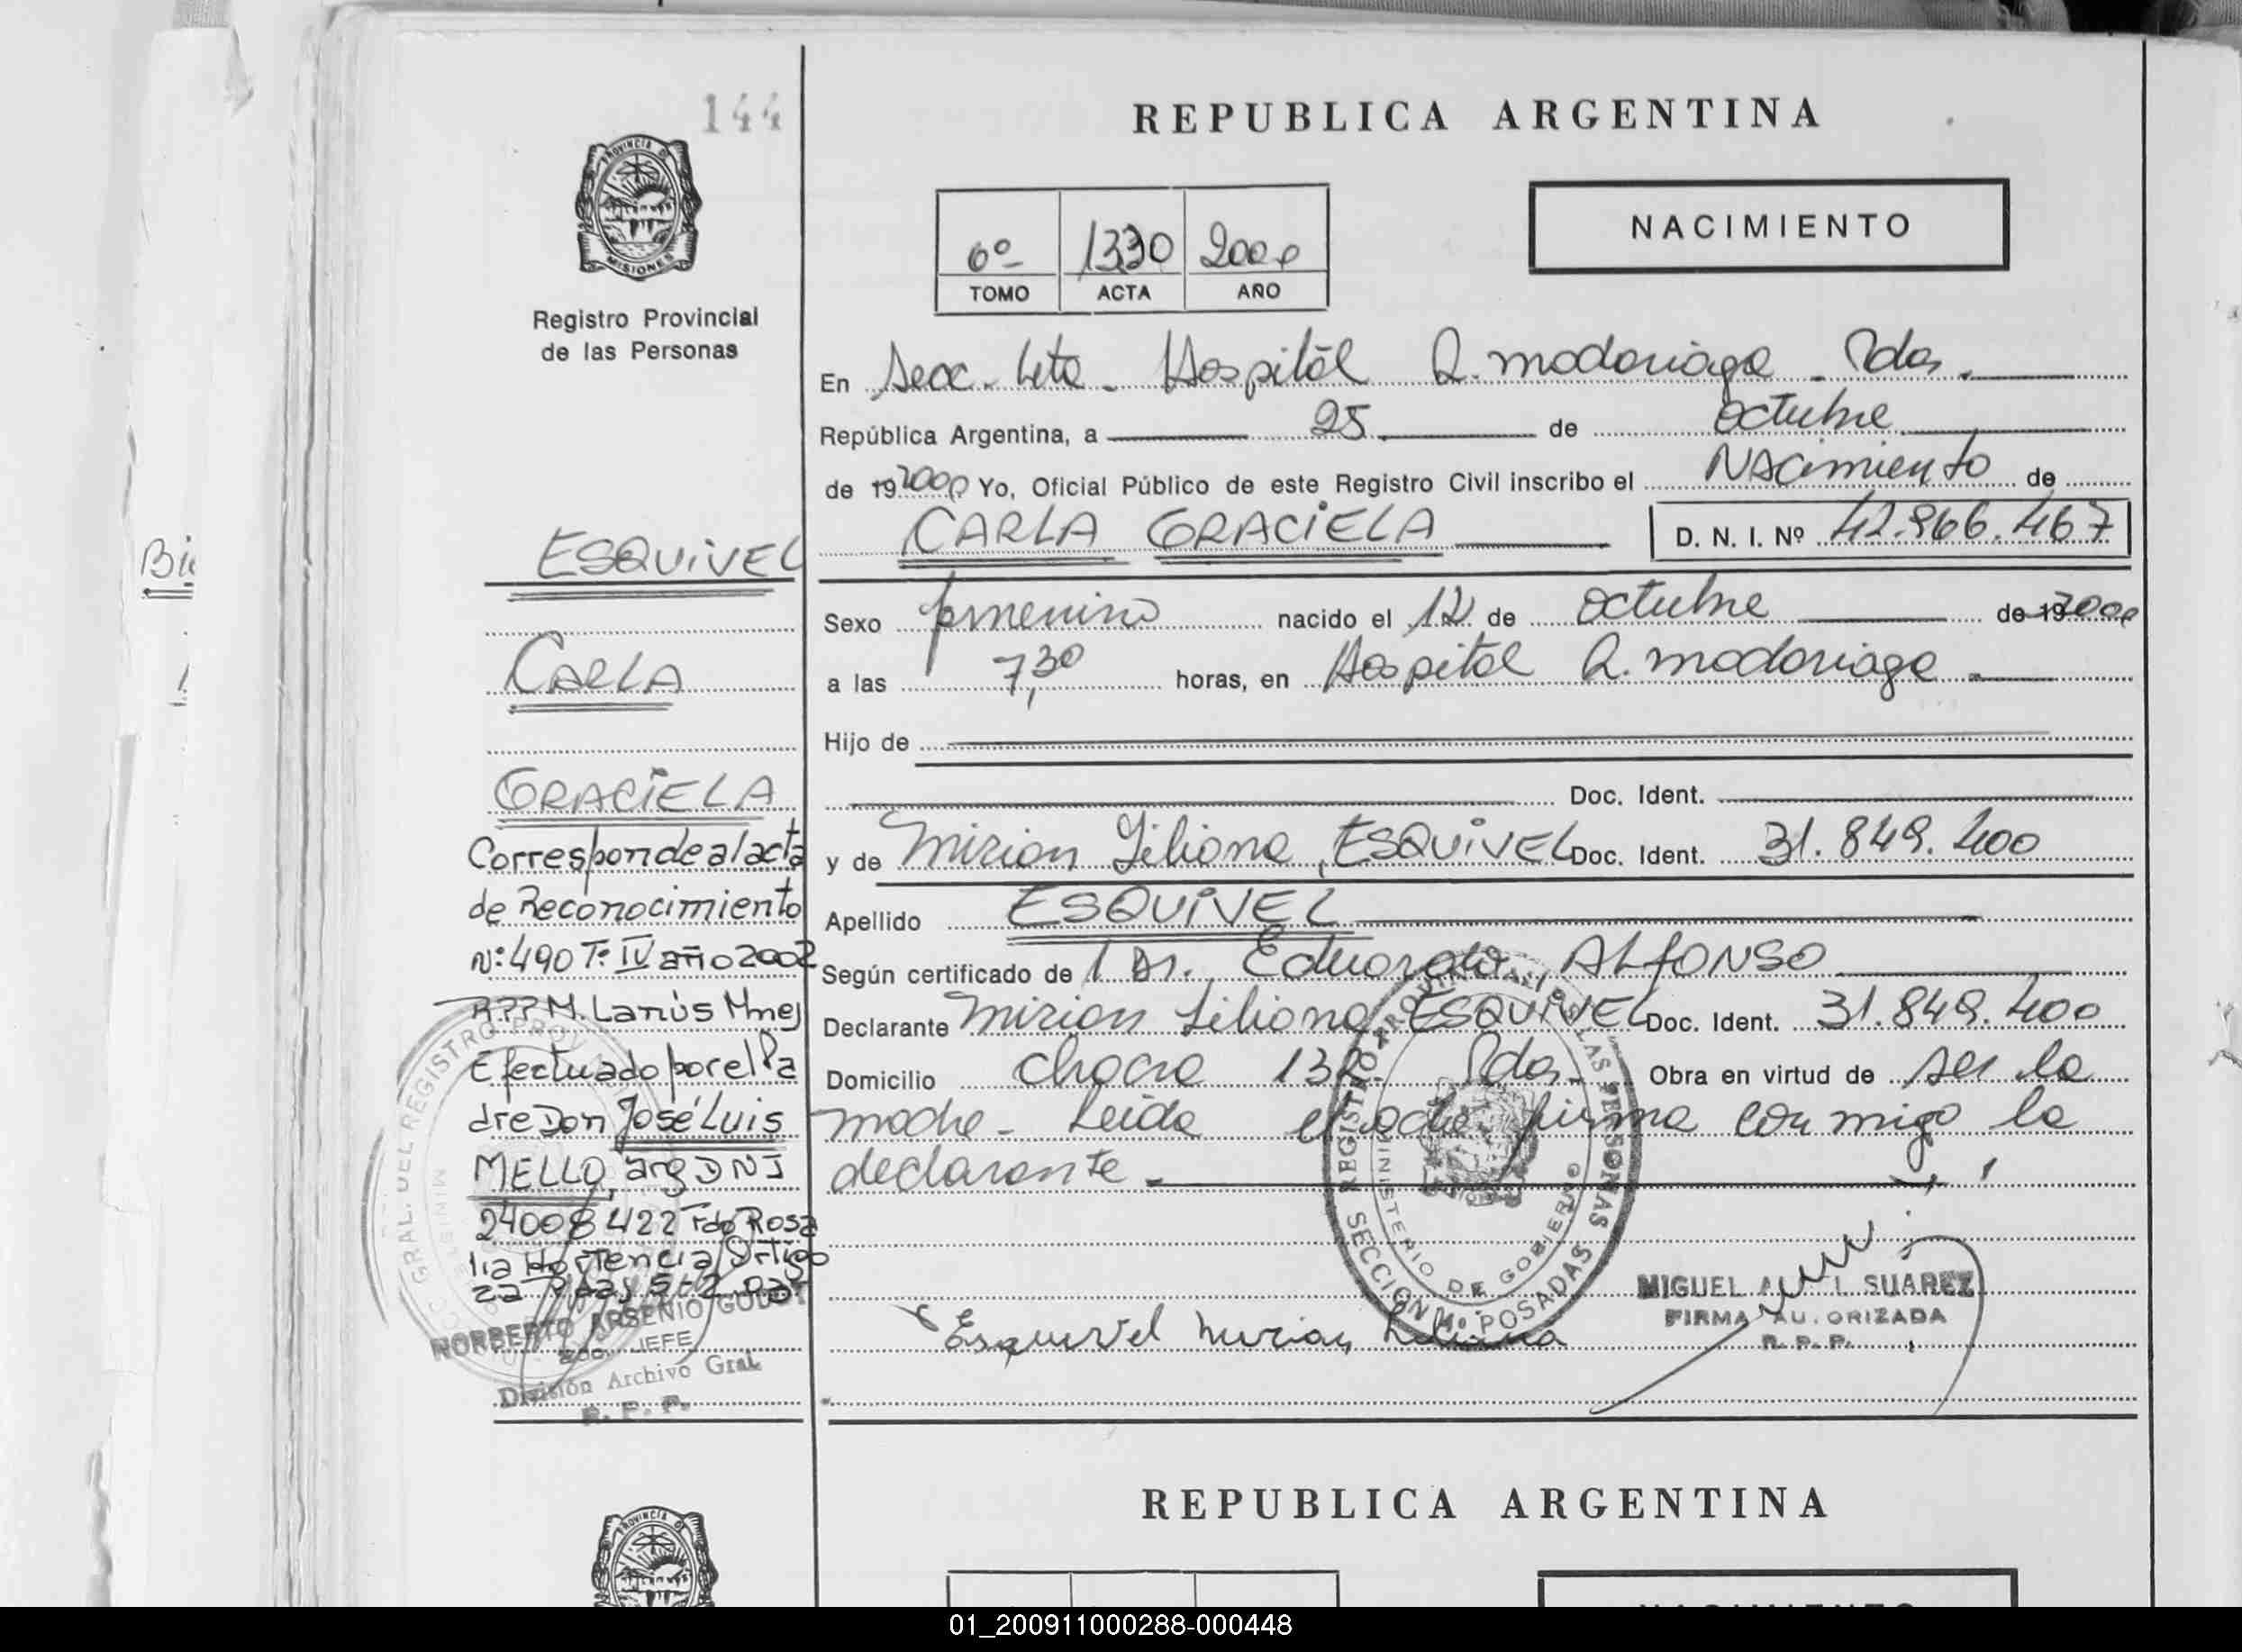 144
REPUBLICA ARGENTINA
PROVINCIA DE
MISIONES
Registro Provincial
de las Personas
6º 1330 2000
TOMO ACTA AÑO
NACIMIENTO
En Secc. 4ta. Hospital R. Madariaga - Pdas.
República Argentina, a 25 de octubre
de 19 2000 Yo, Oficial Público de este Registro Civil inscribo el Nacimiento de
CARLA GRACIELA D. N. I. Nº 42.966.467
Sexo femenino nacido el 12 de octubre de 19 2000
a las 7,30 horas, en Hospital R. Madariaga
Hijo de
Doc. Ident.
y de Mirian Liliana, ESQUIVEL Doc. Ident. 31.849.400
Apellido ESQUIVEL
Según certificado de l Dr. Eduardo ALFONSO
Declarante Mirian Liliana ESQUIVEL Doc. Ident. 31.849.400
Domicilio chacra 132 Pdas. Obra en virtud de ser la
madre - Leída el acta firma con migo la
declarante.
Esquivel Mirian Liliana
MIGUEL SUAREZ
FIRMA AUTORIZADA
R. P. P.
REGISTRO PROVINCIAL DE LAS PERSONAS
MINISTERIO DE GOBIERNO
SECCION 4º POSADAS
ESQUIVEL
CARLA
GRACIELA
Corresponde al acta
de Reconocimiento
Nº: 490 Tº IV año 2002
R.P.P M. Lanús Mnes
Efectuado por el Pa
dre Don José Luis
MELLO, arg DNI
24008422 Fdo Rosa
lia Hortencia Ortigo
za Pdas 5-2
NORBERTO ARSENIO GODOY
JEFE
División Archivo Gral
R. P. P.
REPUBLICA ARGENTINA
PROVINCIA DE
NACIMIENTO
01_200911000288-000448